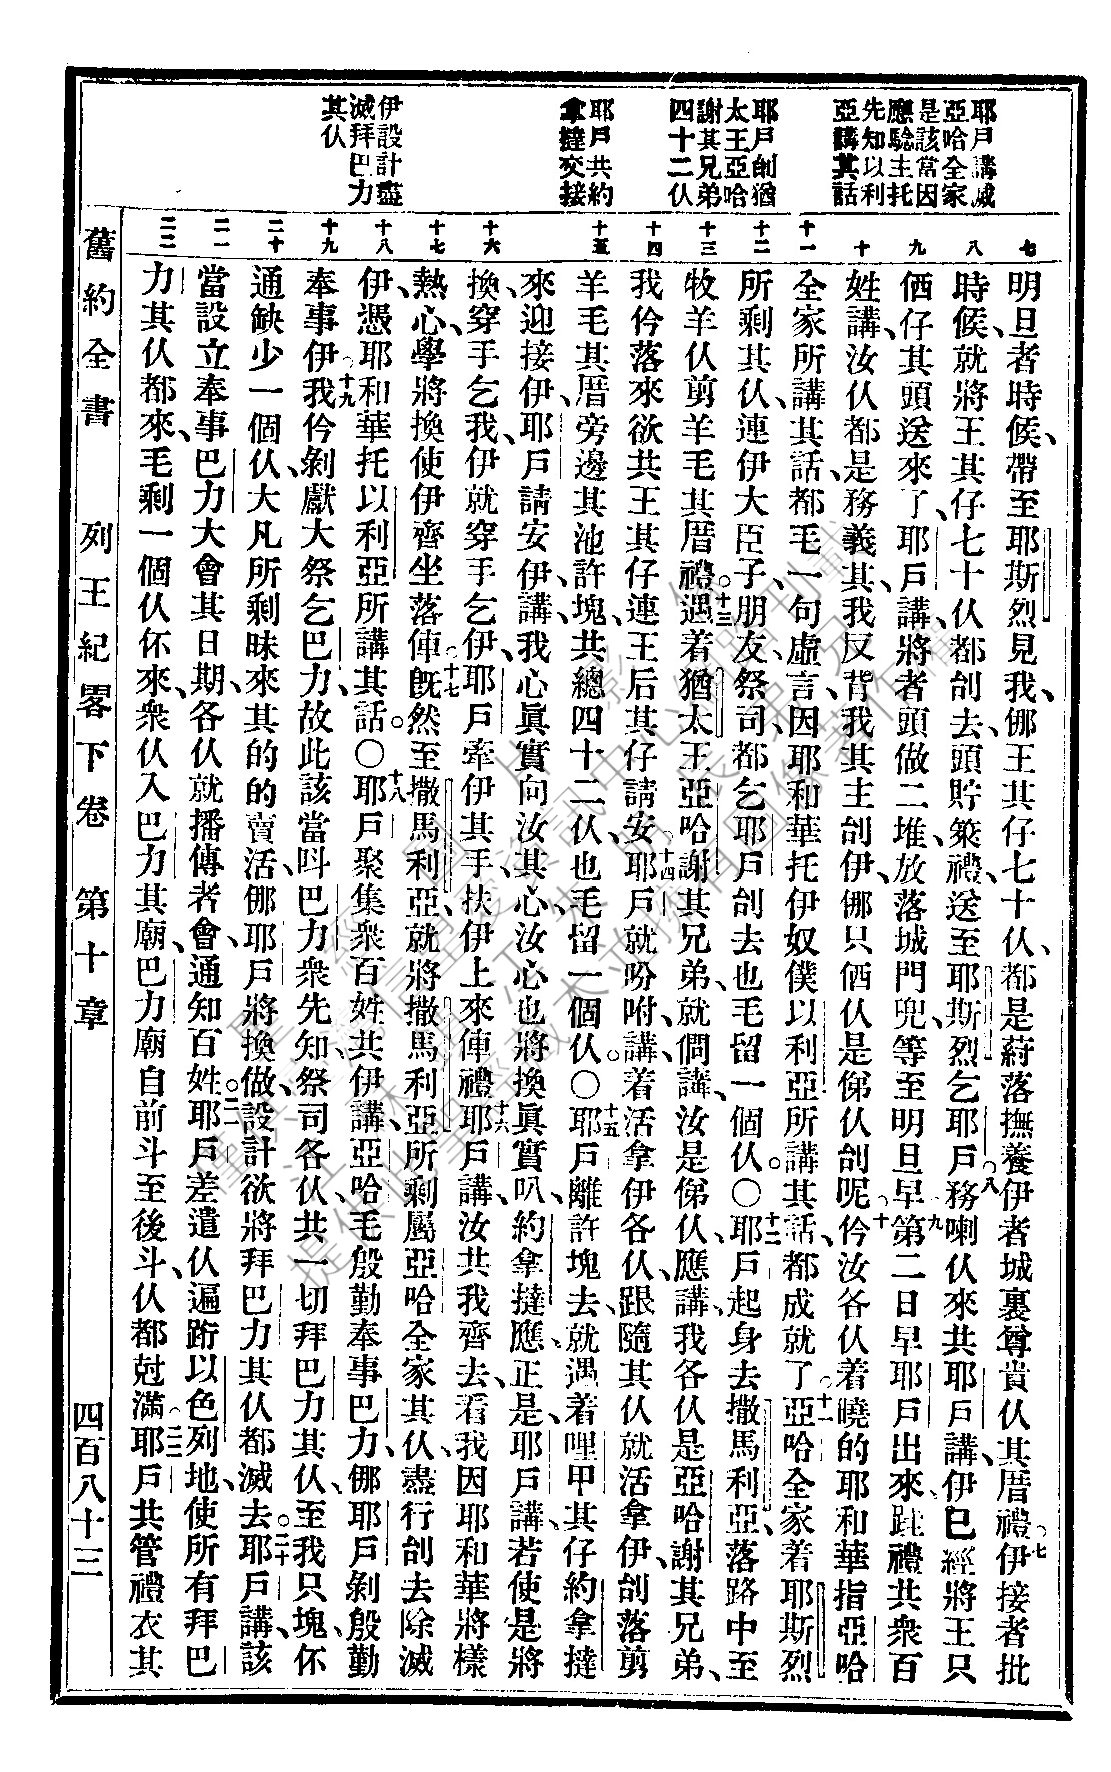 耶戶講滅
亞哈全家
是該當因
應驗主托
先知以利
亞講其話
耶戶刣猶
太王亞哈
謝其兄弟
四十二仈
耶戶共約
拿撻交接
伊設計盡
滅拜巴力
其仈
七 八 九 十 十一 十二 十三 十四 十五 十六 十七 十八 十九 二十 二一 二二
明旦者時候、帶至耶斯烈見我、㑚王其仔七十仈、都是蒔落撫養伊者城裏尊貴仈其厝禮、七伊接者批
時候、就將王其仔七十仈都刣去、頭貯簝禮、送至耶斯烈乞耶戶、八務喇仈來共耶戶講、伊已經將王只
㑚仔其頭送來了、耶戶講、將者頭做二堆、放落城門兜、等至明旦早、九第二日早耶戶出來、跬禮共衆百
姓講、汝仈都是務義其、我反背我其主刣伊、㑚只㑚仈是俤仈刣呢、十仱汝各仈着曉的耶和華指亞哈
全家所講其話、都毛一句虛言、因耶和華托伊奴僕以利亞所講其話、都成就了、十一亞哈全家着耶斯烈
所剩其仈、連伊大臣子、朋友、祭司、都乞耶戶刣去、也毛留一個仈。〇十二耶戶起身去撒馬利亞、落路中至
牧羊仈剪羊毛其厝禮。十三遇着猶太王亞哈謝其兄弟、就僩講、汝是俤仈、應講、我各仈是亞哈謝其兄弟、
我仱落來欲共王其仔連王后其仔請安、十四耶戶就吩咐講、着活拿伊各仈、跟隨其仈就活拿伊、刣落剪
羊毛其厝旁邊其池許塊、共總四十二仈、也毛留一個仈。〇十五耶戶離許塊去、就遇着哩甲其仔約拿撻
來迎接伊、耶戶請安伊、講、我心眞實向汝其心、汝心也將換眞實叭、約拿撻應、正是、耶戶講、若使是將
換、穿手乞我、伊就穿手乞伊、耶戶牽伊其手扶伊上來俥禮、十六耶戶講、汝共我齊去、看我因耶和華將樣
熱心學將換使伊齊坐落俥、十七旣然至撒馬利亞、就將撒馬利亞所剩屬亞哈全家其仈、盡行刣去除滅
伊、憑耶和華托以利亞所講其話。〇十八耶戶聚集衆百姓共伊講、亞哈毛殷勤奉事巴力、㑚耶戶剝殷勤
奉事伊、十九我仱剝獻大祭乞巴力、故此該當呌巴力衆先知、祭司各仈、共一切拜巴力其仈、至我只塊、伓
通缺少一個仈、大凡所剩昧來其的的賣活、㑚耶戶將換做、設計欲將拜巴力其仈都滅去。二十耶戶講、該
當設立奉事巴力大會其日期、各仈就播傳者會、通知百姓。二一耶戶差遣仈遍跡以色列地、使所有拜巴
力其仈都來、毛剩一個仈伓來、衆仈入巴力其廟、巴力廟自前斗至後斗、仈都尅滿、二二耶戶共管禮衣其
舊約全書 列王紀畧下卷 第十章 四百八十三